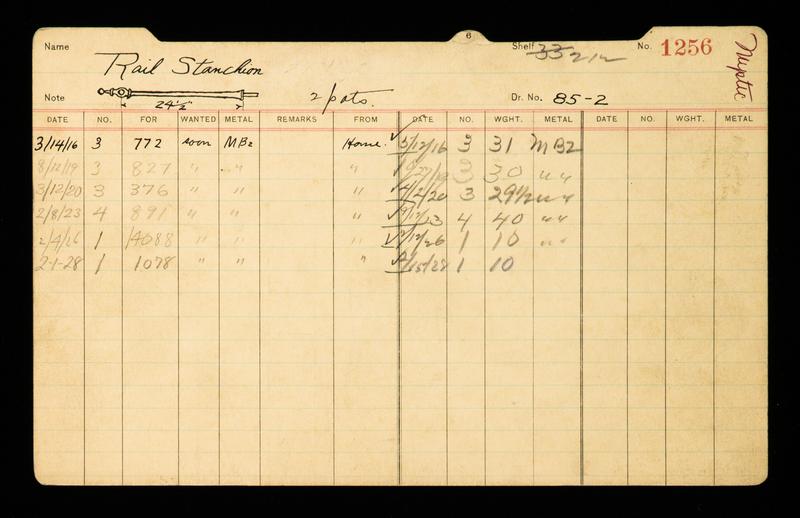 6
Name Rail Stancheon Shelf 33 212 No. 1256
Note 24½" 2 pats. Dr. No. 85-2
DATE NO. FOR WANTED METAL REMARKS FROM DATE NO. WGHT. METAL DATE NO. WGHT. METAL
3/14/16 3 772 soon MBz Home. 3 31 MBz
8/12/19 3 827 " " " 3 30 " "
3/12/20 3 376 " " " 4/2/20 3 29½ " "
2/8/23 4 891 " " " 4 40 " "
2/4/26 1 14088 " " " 2/12/26 1 10 " "
2-1-28 1 1078 " " " 2/15/28 1 10